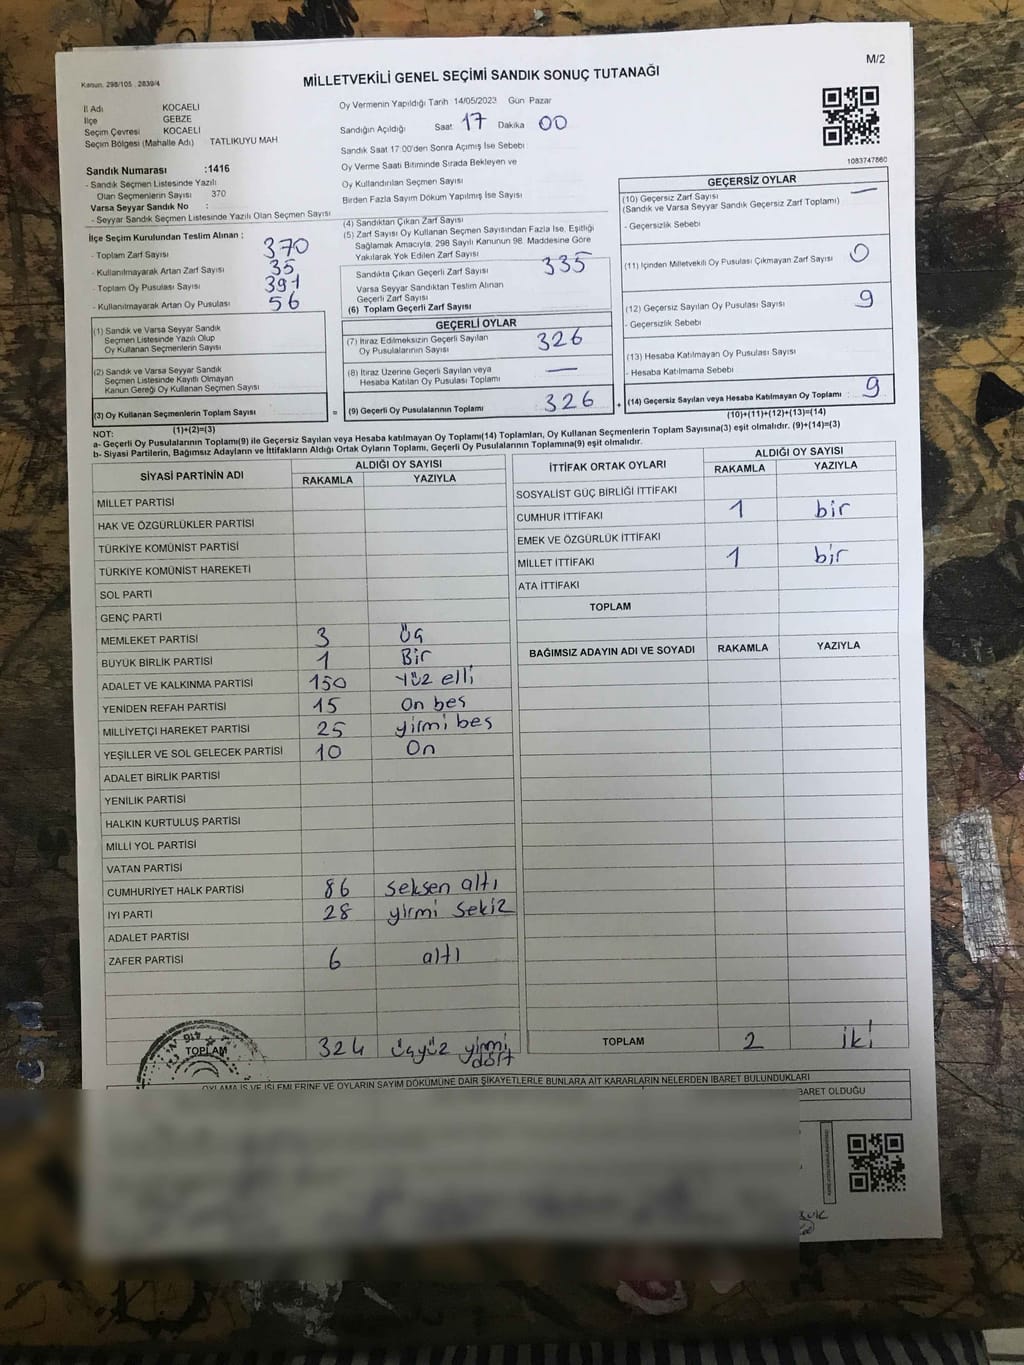 M/2
Kanun. 298/105 , 2839/4
MİLLETVEKİLİ GENEL SEÇİMİ SANDIK SONUÇ TUTANAĞI
İl Adı KOCAELİ
İlçe GEBZE
Seçim Çevresi KOCAELİ
Seçim Bölgesi (Mahalle Adı) TATLIKUYU MAH
Sandık Numarası :1416
- Sandık Seçmen Listesinde Yazılı
Olan Seçmenlerin Sayısı 370
Varsa Seyyar Sandık No :
- Seyyar Sandık Seçmen Listesinde Yazılı Olan Seçmen Sayısı
İlçe Seçim Kurulundan Teslim Alınan :
- Toplam Zarf Sayısı 370
- Kullanılmayarak Artan Zarf Sayısı 35
- Toplam Oy Pusulası Sayısı 391
- Kullanılmayarak Artan Oy Pusulası 56
(1) Sandık ve Varsa Seyyar Sandık
Seçmen Listesinde Yazılı Olup
Oy Kullanan Seçmenlerin Sayısı
(2) Sandık ve Varsa Seyyar Sandık
Seçmen Listesinde Kayıtlı Olmayan
Kanun Gereği Oy Kullanan Seçmen Sayısı
(3) Oy Kullanan Seçmenlerin Toplam Sayısı =
(1)+(2)=(3)
Oy Vermenin Yapıldığı Tarih 14/05/2023 Gün Pazar
Sandığın Açıldığı Saat 17 Dakika 00
Sandık Saat 17:00'den Sonra Açımış İse Sebebi
Oy Verme Saati Bitiminde Sırada Bekleyen ve
Oy Kullandırılan Seçmen Sayısı
Birden Fazla Sayım Döküm Yapılmış İse Sayısı
(4) Sandıktan Çıkan Zarf Sayısı
(5) Zarf Sayısı Oy Kullanan Seçmen Sayısından Fazla İse, Eşitliği
Sağlamak Amacıyla, 298 Sayılı Kanunun 98. Maddesine Göre
Yakılarak Yok Edilen Zarf Sayısı
Sandıkta Çıkan Geçerli Zarf Sayısı 335
Varsa Seyyar Sandıktan Teslim Alınan
Geçerli Zarf Sayısı
(6) Toplam Geçerli Zarf Sayısı
GEÇERLİ OYLAR
(7) İtiraz Edilmeksizin Geçerli Sayılan
Oy Pusulalarının Sayısı 326
(8) İtiraz Üzerine Geçerli Sayılan veya
Hesaba Katılan Oy Pusulası Toplamı —
(9) Geçerli Oy Pusulalarının Toplamı 326 +
1083747860
GEÇERSİZ OYLAR
(10) Geçersiz Zarf Sayısı —
(Sandık ve Varsa Seyyar Sandık Geçersiz Zarf Toplamı)
- Geçersizlik Sebebi
(11) İçinden Milletvekili Oy Pusulası Çıkmayan Zarf Sayısı 0
(12) Geçersiz Sayılan Oy Pusulası Sayısı 9
- Geçersizlik Sebebi
(13) Hesaba Katılmayan Oy Pusulası Sayısı
- Hesaba Katılmama Sebebi
(14) Geçersiz Sayılan veya Hesaba Katılmayan Oy Toplamı : 9
(10)+(11)+(12)+(13)=(14)
NOT:
a- Geçerli Oy Pusulalarının Toplamı(9) ile Geçersiz Sayılan veya Hesaba katılmayan Oy Toplamı(14) Toplamları, Oy Kullanan Seçmenlerin Toplam Sayısına(3) eşit olmalıdır. (9)+(14)=(3)
b- Siyasi Partilerin, Bağımsız Adayların ve İttifakların Aldığı Oyların Toplamı, Geçerli Oy Pusulalarının Toplamına(9) eşit olmalıdır.
SİYASİ PARTİNİN ADI ALDIĞI OY SAYISI
RAKAMLA YAZIYLA
MİLLET PARTİSİ
HAK VE ÖZGÜRLÜKLER PARTİSİ
TÜRKİYE KOMÜNİST PARTİSİ
TÜRKİYE KOMÜNİST HAREKETİ
SOL PARTİ
GENÇ PARTİ
MEMLEKET PARTİSİ 3 üç
BÜYÜK BİRLİK PARTİSİ 1 Bir
ADALET VE KALKINMA PARTİSİ 150 yüz elli
YENİDEN REFAH PARTİSİ 15 On beş
MİLLİYETÇİ HAREKET PARTİSİ 25 yirmi beş
YEŞİLLER VE SOL GELECEK PARTİSİ 10 On
ADALET BİRLİK PARTİSİ
YENİLİK PARTİSİ
HALKIN KURTULUŞ PARTİSİ
MİLLİ YOL PARTİSİ
VATAN PARTİSİ
CUMHURİYET HALK PARTİSİ 86 seksen altı
İYİ PARTİ 28 yirmi sekiz
ADALET PARTİSİ
ZAFER PARTİSİ 6 altı
TOPLAM 324 üçyüz yirmi
dört
İTTİFAK ORTAK OYLARI ALDIĞI OY SAYISI
RAKAMLA YAZIYLA
SOSYALİST GÜÇ BİRLİĞİ İTTİFAKI
CUMHUR İTTİFAKI 1 bir
EMEK VE ÖZGÜRLÜK İTTİFAKI
MİLLET İTTİFAKI 1 bir
ATA İTTİFAKI
TOPLAM
BAĞIMSIZ ADAYIN ADI VE SOYADI RAKAMLA YAZIYLA
TOPLAM 2 iki
OYLAMA İŞ VE İŞLEMLERİNE VE OYLARIN SAYIM DÖKÜMÜNE DAİR ŞİKAYETLERLE BUNLARA AİT KARARLARIN NELERDEN İBARET BULUNDUKLARI
BARET OLDUĞU